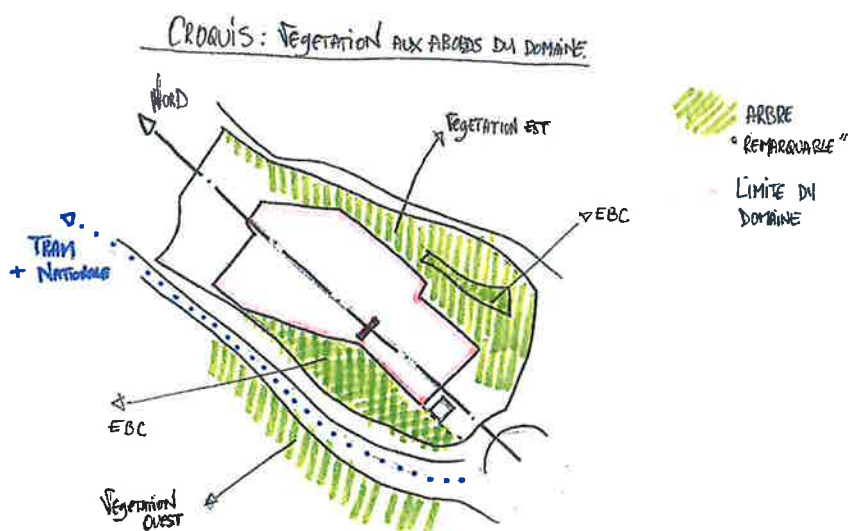 CROQUIS : VEGETATION AUX ABORDS DU DOMAINE.
NORD
VEGETATION EST
ARBRE
"REMARQUABLE"
LIMITE DU
DOMAINE
EBC
TRAM
+ NATIONALE
EBC
VEGETATION
OUEST